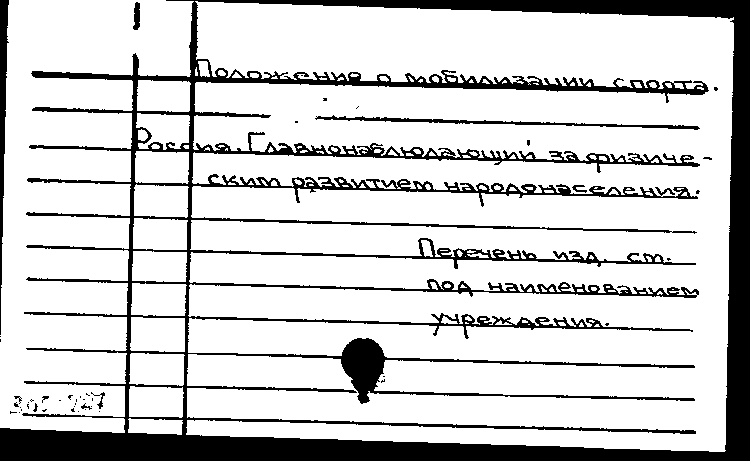 Положение о мобилизации спорта.
Россия. Главнонаблюдающий за физиче-
ским развитием народонаселения.
Перечень изд. см.
под наименованием
учреждения.